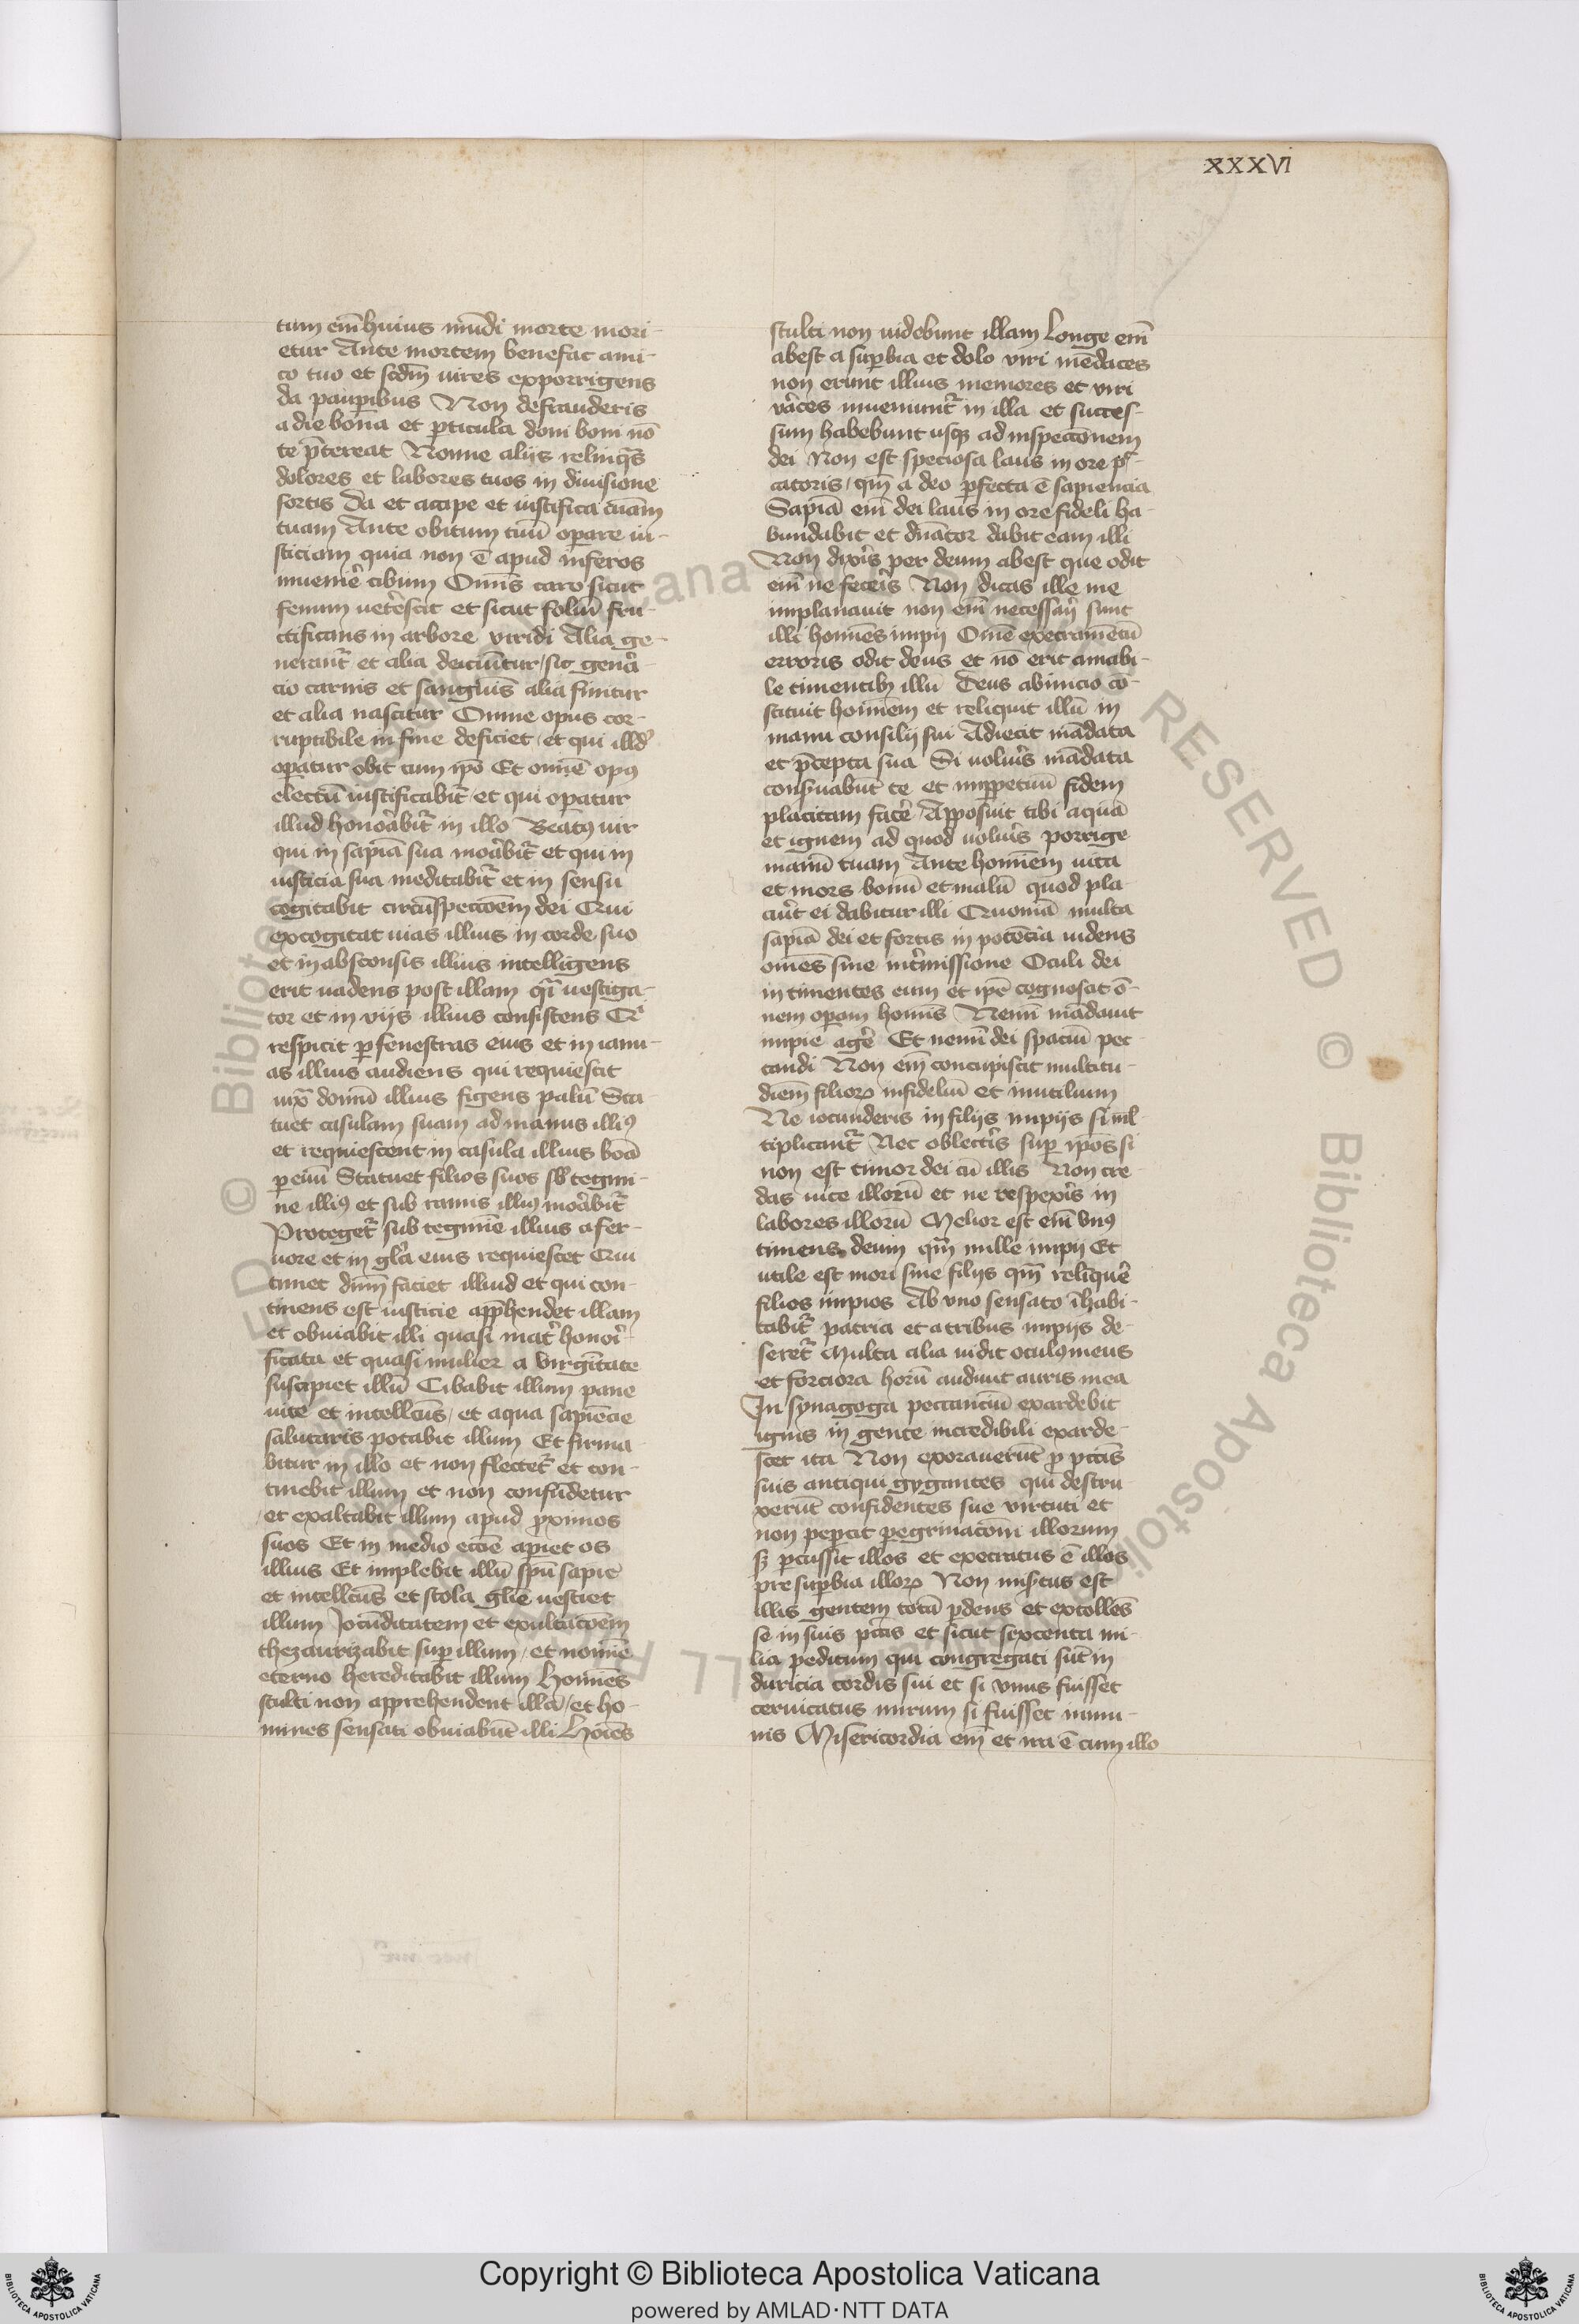 XXXVI
tum em̄ huius mūdi morte mori-
etur Ante mortem benefac ami-
co tuo et scdm̄ uires exporrigens
da paup̄ibus Non defrauderis
a die bona et p̄ticula doni boni nō
te p̄tereat Nonne alijs relinq̄s
dolores et labores tuos in diuisione
sortis Da et accipe et iustifica aīam
tuam Ante obitum tuū operare iu-
sticiam quia non ē apud inferos
inuenir̄e cibum Omīs caro sicut
fenum ueterescit et sicut foliū fru-
ctificans in arbore viridi Alia ge-
nerant̄ et alia deiciūtur / sic gen̄a-
cio carnis et sangwīs alia finitur
et alia nascitur Omne opus cor-
ruptibile in fine deficiet / et qui illd̄
operatur obit cum ip̄o Et omnē opꝰ
electū iustificabit̄ et qui op̄atur
illud honorabit̄ in illo Beatꝰ uir
qui in sapīa sua morabit̄ et qui in
iusticia sua meditabit̄ et in sensu
cogitabit circūspectōem dei Qui
excogitat uias illius in corde suo
et in absconsis illius intelligens
erit uadens post illam q̄i uestiga-
tor et in vijs illius consistens Qͥ
respicit p̄ fenestras eius et in ianu-
as illius audiens qui requiescit
iux̄ domū illius figens palū Sta-
tuet casulam suam ad manus illiꝰ
et requiescent in casula illius bōa
p̄ euū Statuet filios suos sb̄ tegmi-
ne illiꝰ et sub ramis illiꝰ morabit̄
Proteget̄ sub tegmīe illius a fer-
uore et in gl̄a eius requiescet Qui
timet dn̄m faciet illud et qui con-
tinens est iusticie app̄hendet illam
et obuiabit illi quasi mat̄ honori-
ficata et quasi mulier a virgītate
suscipiet illū Cibabit illum pane
uite et intellectūs / et aqua sapiēcie
salutaris potabit illum Et firma-
bitur in illo et non flectet̄ et con-
tinebit illum et non confūdetur
et exaltabit illum apud p̄ximos
suos Et in medio ecc̄ie aperiet os
illius Et implebit illū sp̄u sapīe
et intellectūs et stola gl̄ie uestiet
illum Jocūditatem et exultacōem
thezaurizabit sup̄ illum / et nomīe
eterno hereditabit illum Homīes
stulti non apprehendent illā / et ho-
mines sensati obuiabūt illi Hoīes
stulti non uidebunt illam Longe em̄
abest a sup̄bia et dolo viri mēdaces
non erunt illius memores et viri
v̄aces inueniunt̄ in illa et succes-
sum habebunt usqꝫ ad inspectōnem
dei Non est speciosa laus in ore pec-
catoris / qm̄ a deo p̄fecta ē sapiencia
Sapīa em̄ dei laus in ore fideli ha-
bundabit et dn̄ator dabit eam illi
Non dixīs per deum abest que odit
em̄ ne fecēis Non dicas ille me
implanauit non em̄ necessarij sunt
illi homīes impij Omē execramētū
erroris odit deus et nō erit amabi-
le timentibꝫ illū Deus ab inicio cō-
stituit hominem et reliquit illū in
manu consilij sui Adiecit mādata
et p̄cepta sua Si uoluīs mādata
cons̄uabūt te et imp̄petuū fidem
placitam facēe Apposuit tibi aquā
et ignem ad quod uoluīs porrige
manū tuam Ante hominem uita
et mors bonū et malū quod pla-
cuīt ei dabitur illi Quoniā multa
sapīa dei et fortis in potēcia uidens
omēs sine int̄missione Oculi dei
in timentes eum et ip̄e cognoscit ō-
nem operam hominis Nemī mādauit
impie agēe Et nemī dei spaciū pec-
candi Non em̄ concupiscit multitu-
diem filioꝝ infideliū et inutilium
Ne iocunderis in filijs impijs si ml̄-
tiplicant̄ Nec oblectēis sup̄ ip̄os si
non est timor dei cū illis Non cre-
das uite illorū et ne respexēis in
labores illorū Melior est em̄ vnꝰ
timens deum qm̄ mille impij Et
utile est mori sine filijs qm̄ relinquēe
filios impios Ab vno sensato īhabi-
tabit̄ patria et a tribus impijs de-
seret̄ Multa alia uidit oculꝰ meus
et forciora horū audiuit auris mea
In synagoga peccanciū exardebit
ignis in gente incredibili exarde-
scet ira Non exorauerūt p̄ pctīs
suis antiqui gygantes qui destru-
xerūt confidentes sue virtuti et
non pepercit peregrinacōni illorum
sꝫ p̄cussit illos et execratus ē illos
pre sup̄bia illoꝝ Non mis̄tus est
illis gentem totā p̄dens et extollēs
se in suis pctīs et sicut sexcenta mi-
lia peditum qui congregati sūt in
duricia cordis sui et si vnus fuisset
ceruicatus mirum si fuisset immu-
nis Misericordia em̄ et ira ē cum illo
Copyright © Biblioteca Apostolica Vaticana
powered by AMLAD·NTT DATA